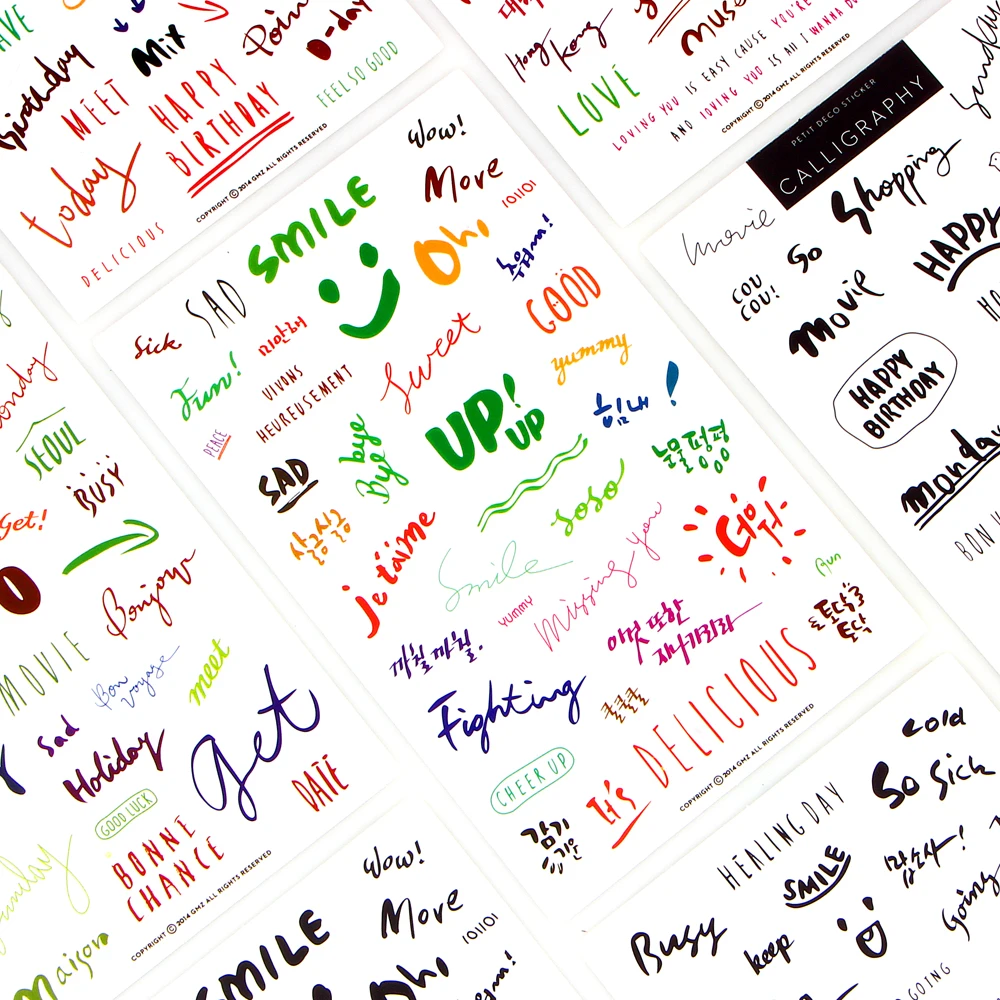 Birthday
MEET
Mix
Poin
D-day
FEEL SO GOOD
HAPPY
BIRTHDAY
today
DELICIOUS
COPYRIGHT © 2014 GMZ ALL RIGHTS RESERVED
Hong
Kong
LOVE
LOVING YOU IS EASY CAUSE YOU'RE
AND LOVING YOU IS ALL I WANNA DO
COPYRIGHT © 2014 GMZ ALL RIGHTS RESERVED
PETIT DECO STICKER
CALLIGRAPHY
Shopping
movie
So
COU
COU!
Movie
HAPPY
HAPPY
BIRTHDAY
Monday
Wow!
Move
101101
SMILE
Oh,
GOOD
SAD
Sick
미안해
Fun!
VIVONS
HEUREUSEMENT
Sweet
yummy
PEACE
UP!
UP
힘내!
SAD
Bye
bye
눈물 펑펑
살금살금
soso
je t'aime
Smile
yummy
Missing you
Run
까칠까칠.
이것 또한
지나가리라
토닥
토닥
Fighting
쿨쿨쿨
CHEER UP
It's DELICIOUS
감기
기운
COPYRIGHT © 2014 GMZ ALL RIGHTS RESERVED
SEOUL
BUSY
Get!
Bonjour
MOVIE
Bon
voyage
meet
Sad
Holiday
Get
GOOD LUCK
DATE
BONNE
CHANCE
COPYRIGHT © 2014 GMZ ALL RIGHTS RESERVED
Maison
Wow!
Move
101101
SMILE
Oh,
cold
So Sick
HEALING DAY
SMILE
감소사!
Going
Busy
keep
GOING